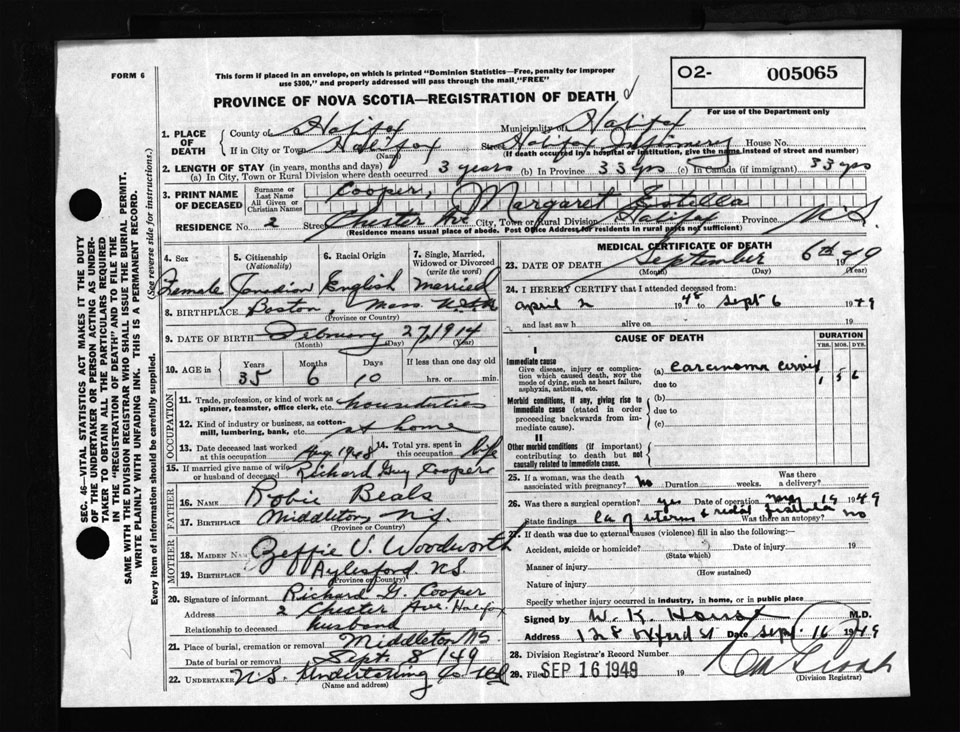 FORM 6
This form if placed in an envelope, on which is printed "Dominion Statistics—Free, penalty for improper
use $300," and properly addressed will pass through the mail "FREE"
O2- 005065
For use of the Department only
PROVINCE OF NOVA SCOTIA—REGISTRATION OF DEATH
1. PLACE OF DEATH
County of Halifax Municipality of Halifax
If in City or Town Halifax Street Halifax Infirmary House No.
(Name) (If death occurred in a hospital or institution, give the name instead of street and number)
2. LENGTH OF STAY (in years, months and days)
(a) In City, Town or Rural Division where death occurred 3 years (b) In Province 33 yrs (c) In Canada (if immigrant) 33 yrs
3. PRINT NAME OF DECEASED
Surname or Last Name Cooper,
All Given or Christian Names Margaret Estella
RESIDENCE No. 2 Street Chester Ave City, Town or Rural Division Halifax Province N.S.
(Residence means usual place of abode. Post Office Address for residents in rural parts not sufficient)
4. Sex 5. Citizenship (Nationality) 6. Racial Origin 7. Single, Married, Widowed or Divorced (write the word)
Female Canadian English Married
8. BIRTHPLACE Boston, Mass. U.S.A.
(Province or Country)
9. DATE OF BIRTH February 27, 1914
(Month) (Day) (Year)
10. AGE in Years Months Days If less than one day old
35 6 10 hrs. or min.
OCCUPATION
11. Trade, profession, or kind of work as spinner, teamster, office clerk, etc. housduties
12. Kind of industry or business, as cotton-mill, lumbering, bank, etc. at home
13. Date deceased last worked at this occupation Aug. 1948 14. Total yrs. spent in this occupation life
15. If married give name of wife or husband of deceased Richard Guy Cooper
FATHER
16. NAME Robie Beals
17. BIRTHPLACE Middleton, N.S.
(Province or Country)
MOTHER
18. MAIDEN NAME Zeffie V. Woodworth
19. BIRTHPLACE Aylesford N.S.
(Province or Country)
20. Signature of informant Richard G. Cooper
Address 2 Chester Ave. Halifax
Relationship to deceased husband
21. Place of burial, cremation or removal Middleton N.S.
Date of burial or removal Sept. 8/49
22. UNDERTAKER N.S. Undertaking Co Ltd
(Name and address)
MEDICAL CERTIFICATE OF DEATH
23. DATE OF DEATH September 6th 1949
(Month) (Day) (Year)
24. I HEREBY CERTIFY that I attended deceased from:
April 2 1948 to Sept 6 1949
and last saw h alive on 19
CAUSE OF DEATH
DURATION
YRS. MOS. DYS.
I
Immediate cause
Give disease, injury or complication which caused death, NOT the mode of dying, such as heart failure, asphyxia, asthenia, etc.
(a) carcinoma cervix 1 5 6
due to
Morbid conditions, if any, giving rise to immediate cause (stated in order proceeding backwards from immediate cause).
(b)
due to
(c)
II
Other morbid conditions (if important) contributing to death but not causally related to immediate cause.
25. If a woman, was the death associated with pregnancy? No Duration weeks. Was there a delivery?
26. Was there a surgical operation? yes Date of operation 19 1949
State findings Ca of uterus & fistula Was there an autopsy? no
27. If death was due to external causes (violence) fill in also the following:
Accident, suicide or homicide? Date of injury 19
(State which)
Manner of injury
(How sustained)
Nature of injury
Specify whether injury occurred in industry, in home, or in public place
Signed by W. K. M.D.
Address 128 Oxford St Date Sept. 16 1949
28. Division Registrar's Record Number
29. Filed SEP 16 1949 19
(Division Registrar)
SEC. 46—VITAL STATISTICS ACT MAKES IT THE DUTY
OF THE UNDERTAKER OR PERSON ACTING AS UNDER-
TAKER TO OBTAIN ALL THE PARTICULARS REQUIRED
IN THE "REGISTRATION OF DEATH" AND TO FILE THE
SAME WITH THE DIVISION REGISTRAR WHO SHALL ISSUE THE BURIAL PERMIT.
WRITE PLAINLY WITH UNFADING INK. THIS IS A PERMANENT RECORD.
Every item of information should be carefully supplied. (See reverse side for instructions.)